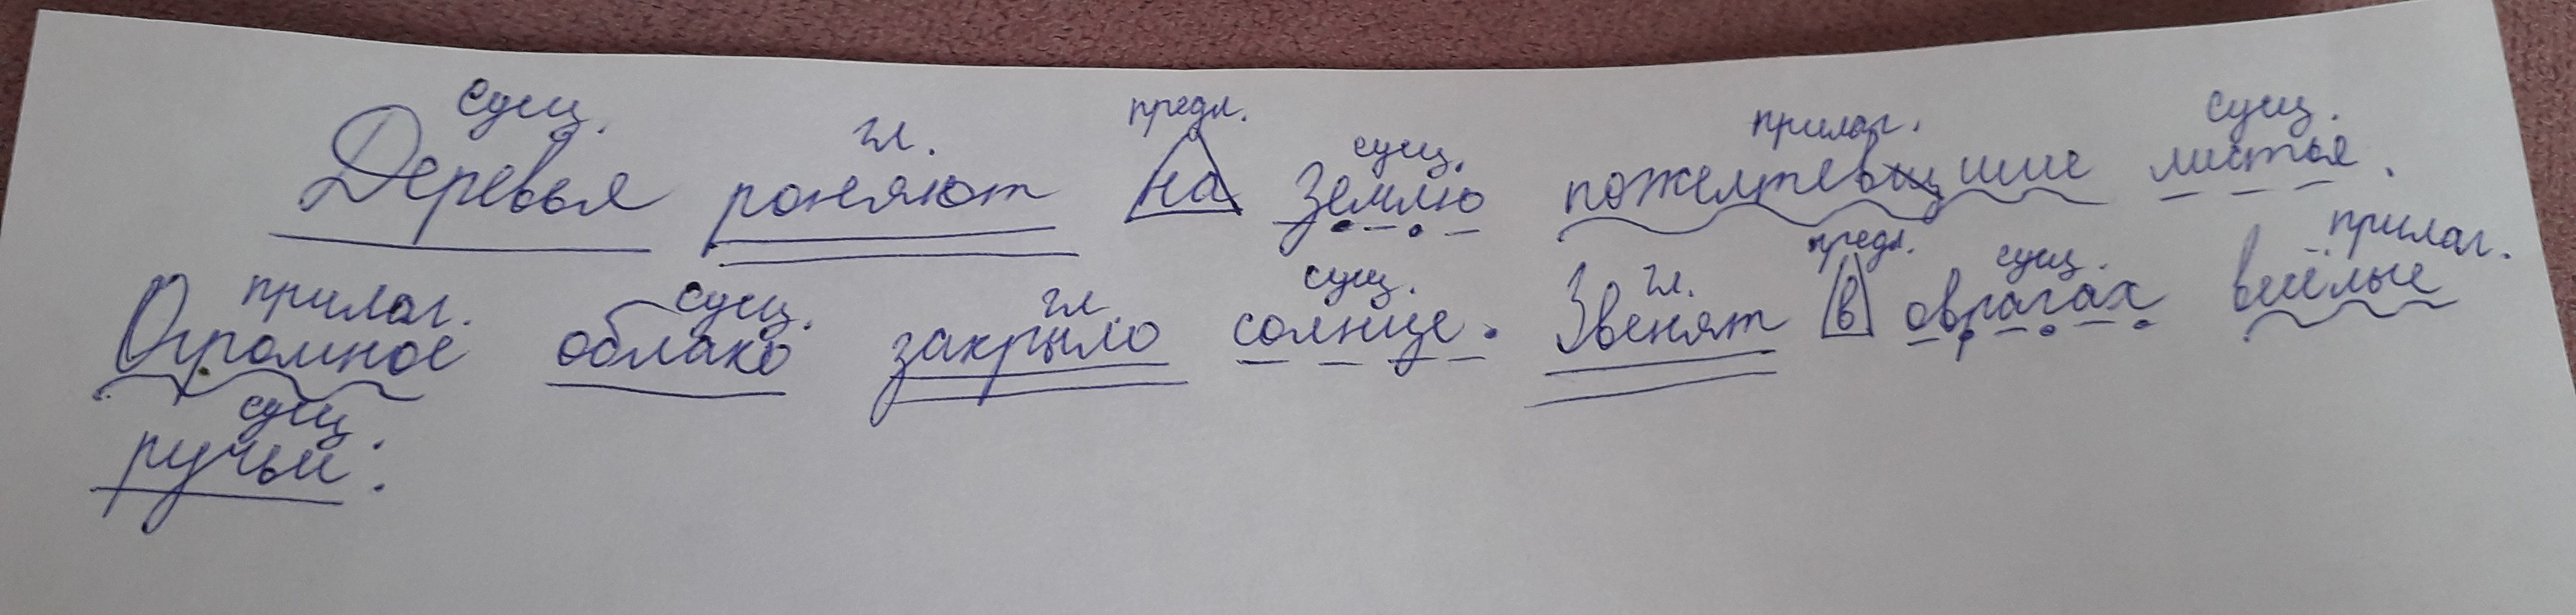 сущ. гл. предл. сущ. прилаг. сущ.
Деревья роняют на землю пожелтевшие листья.
прилаг. сущ. гл. сущ. гл. предл. сущ. прилаг.
Огромное облако закрыло солнце. Звенят в оврагах весёлые
сущ.
ручьи.